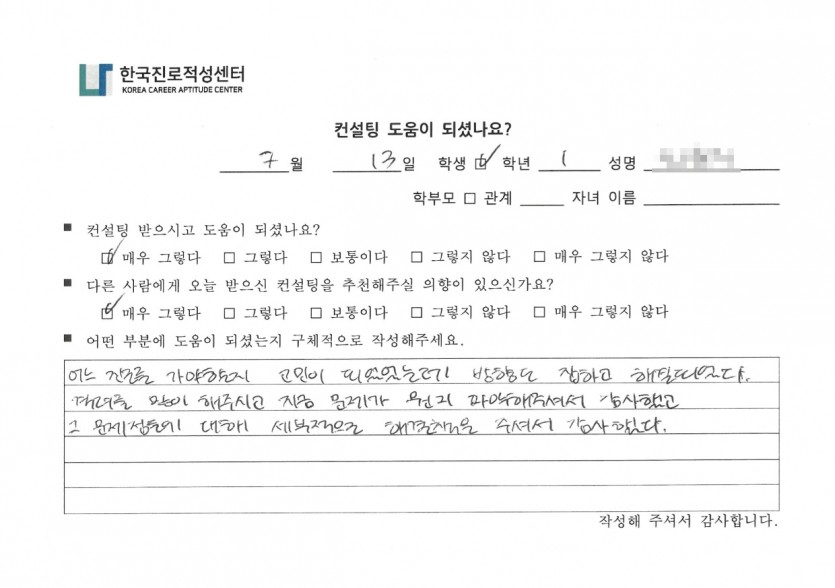 한국진로적성센터
KOREA CAREER APTITUDE CENTER
컨설팅 도움이 되셨나요?
7월 13일 학생 ☑ 학년 1 성명
학부모 □ 관계 자녀 이름
■ 컨설팅 받으시고 도움이 되셨나요?
☑ 매우 그렇다 □ 그렇다 □ 보통이다 □ 그렇지 않다 □ 매우 그렇지 않다
■ 다른 사람에게 오늘 받으신 컨설팅을 추천해주실 의향이 있으신가요?
☑ 매우 그렇다 □ 그렇다 □ 보통이다 □ 그렇지 않다 □ 매우 그렇지 않다
■ 어떤 부분에 도움이 되셨는지 구체적으로 작성해주세요.
어느 진로를 가야할지 고민이 되었었는데 방향도 잡하고 해결되었다.
격려를 많이 해주시고 지금 문제가 뭔지 파악해주셔서 감사했고
그 문제점들에 대해 세부적으로 해결책을 주셔서 감사합니다.
작성해 주셔서 감사합니다.